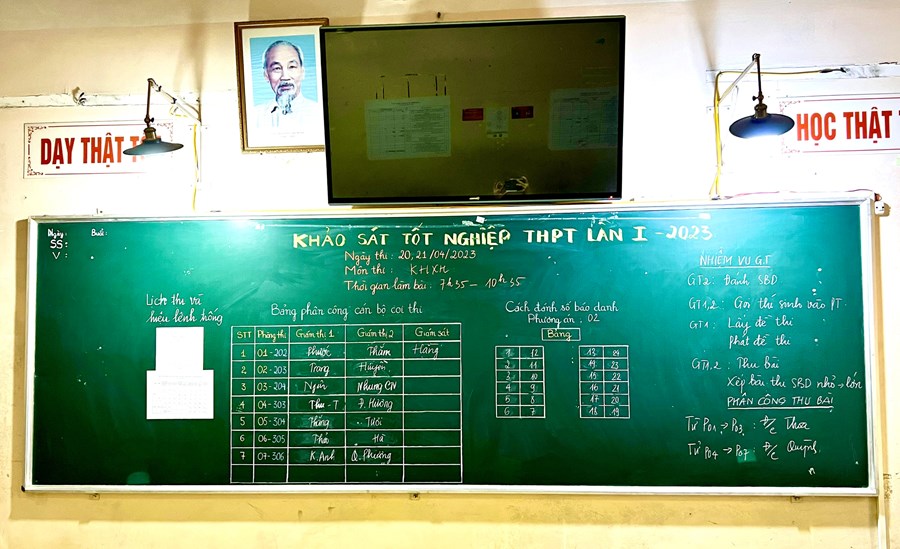 DẠY THẬT T
HỌC THẬT
Ngày: Buổi:
SS:
V:
KHẢO SÁT TỐT NGHIỆP THPT LẦN I - 2023
Ngày thi: 20, 21/04/2023
Môn thi: KHXH
Thời gian làm bài: 7h35 - 10h35
Lịch thi và
hiệu lệnh trống
Bảng phân công cán bộ coi thi
STT Phòng thi Giám thị 1 Giám thị 2 Giám sát
1 01-202 Phước Thắm Hằng
2 02-203 Trang Huyền
3 03-204 Ngân Nhung CN
4 04-303 Thu-T Đ. Hương
5 05-304 Thắng Tươi
6 06-305 Thái Hà
7 07-306 K.Anh Q.Phương
Cách đánh số báo danh
Phương án: 02
Bảng
1 12 13 24
2 11 14 23
3 10 15 22
4 9 16 21
5 8 17 20
6 7 18 19
NHIỆM VỤ G.T
GT2: Đánh SBD
GT1,2: Gọi thí sinh vào PT.
GT1: Lấy đề thi
phát đề thi
GT1,2: Thu bài
Xếp bài thi SBD nhỏ → lớn
PHÂN CÔNG THU BÀI
Từ P01 → P03: Đ/c Thoa
Từ P04 → P07: Đ/c Quỳnh